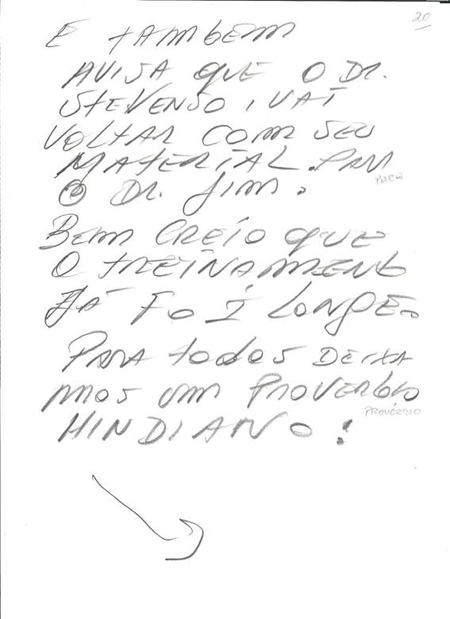 20
E TAMBEM
AVISA QUE O DR.
STEVENSO, VAI
VOLTAR COM SEU
MATERIAL. PARA
PARA
O DR. JIM.
BEM CREIO QUE
O TREINAMENTO
JÁ FOI LONGE.
PARA TODOS DEIXA
MOS UM PROVERBIO
PROVÉRBIO
HINDIANO!